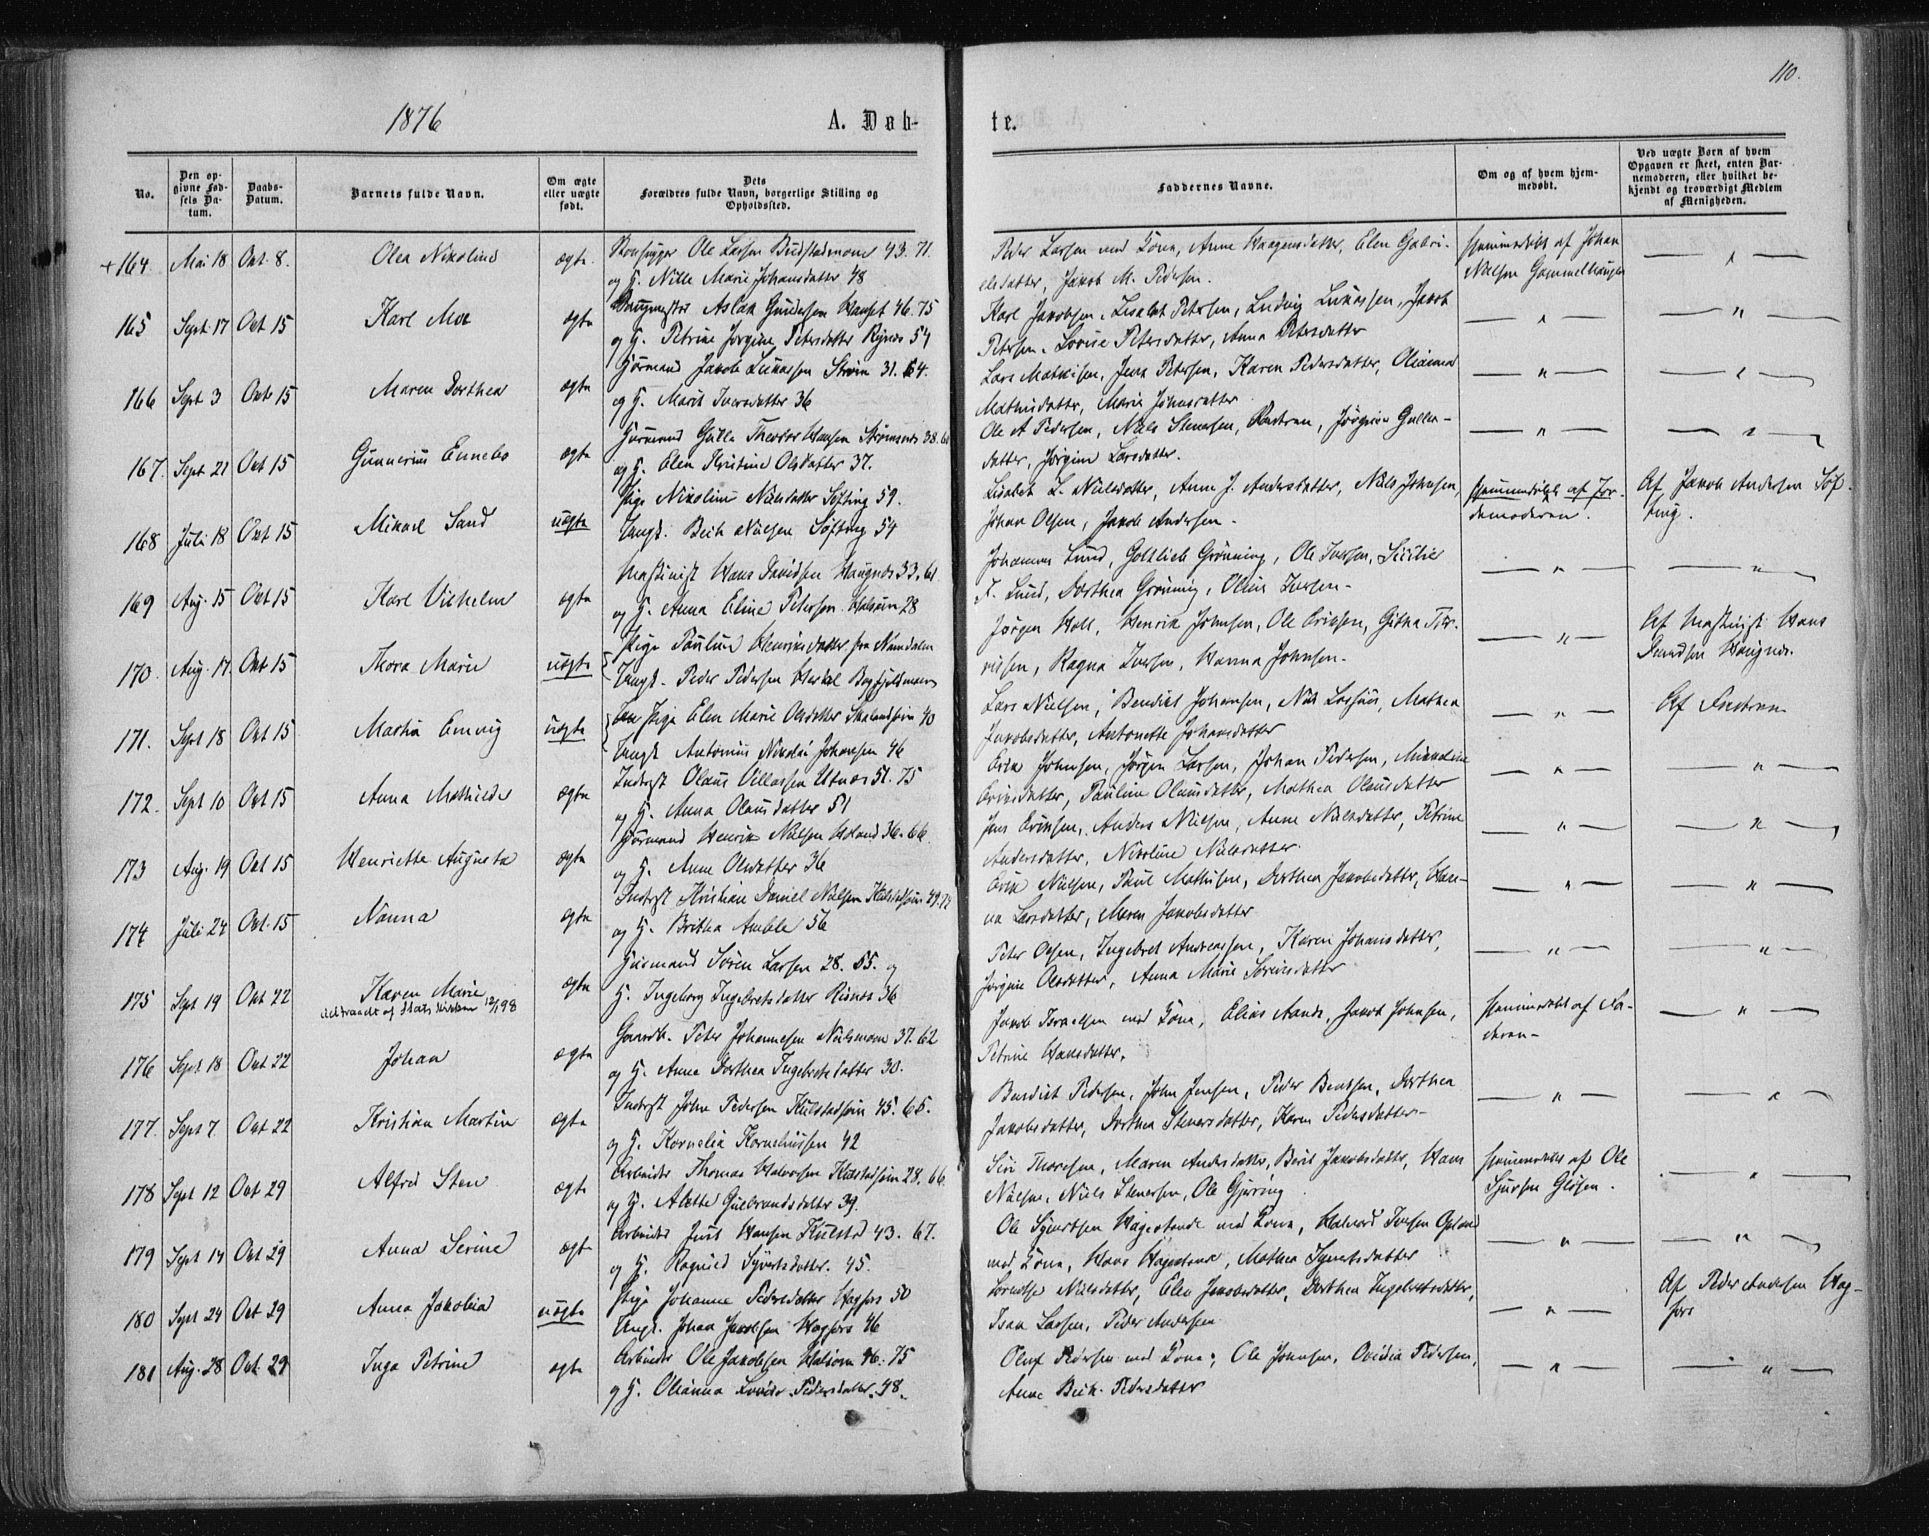 110.
1876
A. Døb-
te.
No.
Den op-
givne Fød-
sels Da-
tum.
Daabs-
Datum.
Barnets fulde Navn.
Om ægte
eller uægte
født.
Dets
Forældres fulde Navn, borgerlige Stilling og
Opholdssted.
Faddernes Navne.
Om og af hvem hjem-
medøbt.
Ved uægte Børn af hvem
Opgaven er skeet, enten Bar-
nemoderen, eller hvilket be-
kjendt og troværdigt Medlem
af Menigheden.
+164 Mai 18 Oct. 8. Olea Nikoline ægte. Ole Larsen 43. 71.
og H. Nille Marie Johansdatter 48
Peder Larsen med Kona, Anne Haagensdatter, Elen Gabri-
elsdatter, Jakob M. Pedersen.
Hjemmedøbt af Johan
Nielsen Gammelhaugen
165 Sept. 17 Oct 15 Karl Moe ægte Aslak Gundersen 46. 75
og H. Petrine Jørgine Petersdatter Rynes 54
Karl Jakobsen, Lisabet Petersen, Ludvig Lukassen, Jakob
Petersen, Lovise Petersdatter, Anna Petersdatter
166 Sept 3 Oct 15 Maren Dorthea ægte Gjørmand Jakob Lukassen Strøm 31. 64.
og H. Marit Iversdatter 36
Lars Mathisen, Jens Petersen, Karen Pedersdatter,
Mathisdatter, Marie Johnsdatter
167. Sept 21 Oct 15 Gunnerius Ennebo ægte Theodor Hansen Strømsnes 38.
og H. Elen Kristine Olsdatter 37.
Ole A Pedersen, Niels Stenersen, Jørgine
datter, Jørgine Larsdatter.
168 Juli 18 Oct 15 Mikael Sand uægte Pige Nikoline Nielsdatter Søfting 59.
Ungk. Nielsen Søfting 54
Lisabet L. Nielsdatter, Anne J. Andersdatter, Niels Johnsen,
Johan Olsen, Jakob Andersen.
Hjemmedøbt af Jor-
demoderen.
Af Jakob Andersen Søf-
ting.
169 Aug. 15 Oct 15 Karl Vilhelm ægte Maskinist Hans Davidsen Haugnes 33. 61.
og H. Anna Eline Petersen 28
Johannes Lund, Gottlieb Grønning, Ole Iversen,
F. Lund, Dorthea Grønning, Iversen
170. Aug. 17. Oct 15 Thora Marie uægte Pige Pauline Henriksdatter fra Namdalen
Ungk. Peder Pedersen
Jørgen Holl, Henrik Johnsen, Ole
Ragna Iversen, Hanna Johnsen.
Af Maskinist Hans
Davidsen Haugnes.
171. Sept 18 Oct 15 Martha Emvig uægte Pige Elen Marie Olsdatter 40
Ungk. Antonius Nikolai Johansen 46
Lars Nielsen, Bendikt Johansen, Nils Larsen, Mathea
Jakobsdatter, Antonette Johansdatter
Af Faderen
172. Sept 10 Oct 15 Anna Mathilde ægte Inderst Olaus Villassen Utnes 51. 75
og H. Anna Olausdatter 51
Johnsen, Jørgen Larsen, Johan Pedersen, Nikoline
Pauline Olausdatter, Mathea Olausdatter
173 Aug. 19 Oct 15 Henriette Augusta ægte Gjørmand Henrik Nielsen 36. 66.
og H. Anne Olsdatter 36
Jens Eriksen, Anders Nielsen, Anne Nielsdatter, Petrine
Andersdatter, Nikoline Nielsdatter.
174 Juli 24 Oct. 15 Nanna ægte Inderst Kristian Daniel Nielsen
og H. Britha Amble 56
Erik Nielsen, Paul Mathisen, Dorthea Jakobsdatter, Han-
na Larsdatter, Maren Jakobsdatter
175 Sept 19 Oct 22 Karen Marie
Udtraadt af Statskirken 12/1 98
ægte Gjørmand Søren Larsen 28. 55. og
H. Ingeborg Ingebretsdatter Risnes 36
Peter Olsen, Ingebret Andreassen, Karen Johansdatter,
Jørgine Olsdatter, Anna Marie Sørensdatter
176 Sept 18 Oct 22 Johan ægte Gaardbr. Peter Johannesen Nilsmoen 37. 62
og H. Anne Dorthea Ingebretsdatter 30.
Jakob Israelsen med Kona, Elias Aande, Jakob Johnsen,
Petrine Hansdatter.
Hjemmedøbt af Fa-
deren
177. Sept 7 Oct 22 Kristian Martin ægte Inderst John Pedersen Kulstadsjøen 45. 65.
og H. Kornelia Korneliussen 42
Bendikt Pedersen, John Jensen, Peder Bentsen, Dorthea
Jakobsdatter, Dorthea Stenersdatter, Karen Pedersdatter
178 Sept 12 Oct 29 Alfred Sten ægte Arbeider Thomas Halvorsen 28. 66.
og H. Alette Gulbrandsdatter 39.
Siri Thoresen, Maren Andersdatter, Berit Jakobsdatter, Hans
Nielsen, Niels Stenersen, Ole Gjøring
Hjemmedøbt af Ole
Sjursen Gløsen.
179 Sept 14 Oct 29 Anna Serine ægt Arbeider Hansen Kulstad 43. 67.
og H. Ragnild Syvertsdatter. 45.
Ole Syvertsen Hagestande med Kona, Halvord Iversen
med Kona, Hans Hagestande, Mathea Syvertsdatter
180 Sept 24 Oct 29 Anna Jakobia uægte Pige Johanne Pedersdatter Hagfors 50
Ungk. Johan Jakobsen Hagfors 46
Lorentse Nielsdatter, Elen Jakobsdatter, Dorthea Ingebretsdatter,
Isak Larsen, Peder Andersen
Af Peder Andersen Hag-
fors
181 Aug. 28 Oct. 29 Inga Petrine ægte Arbeider Ole Jakobsen 46. 75
og H. Olianna Lovise Pedersdatter. 48.
Oluf Pedersen med Kona, Ole Johnsen, Ovidia Pedersen,
Anne Pedersdatter